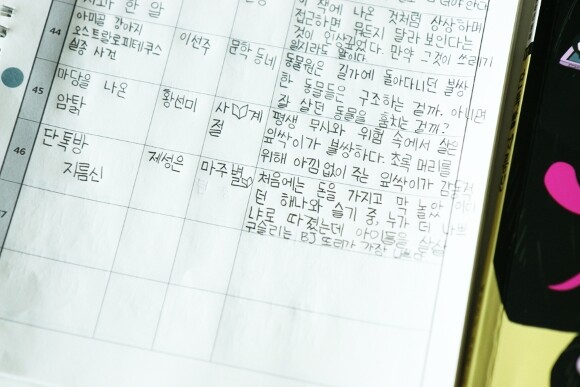 과 한 알
이 책에 나온 것처럼 상상하며
접근하면 뭐든지 달라 보인다는
것이 인상적이었다. 만약 그것이 쓰레기
일지라도 말이다.
44
아미골 강아지
오스트랄로피테쿠스
실종 사건
이선주
문학 동네
동물원은 길가에 돌아다니던 불쌍
한 동물들은 구조하는 걸까. 아니면
잘 살던 동물을 훔치는 걸까?
45
마당을 나온
암탉
황선미
사계
절
평생 무시와 위험 속에서 살은
잎싹이가 불쌍하다. 초록 머리를
위해 아낌 없이 주는 잎싹이가 감동적
46
단톡방
지름신
제성은
마주별
처음에는 돈을 가지고 막 놀았
던 해나와 슬기 중, 누가 더 나쁘
냐로 따졌는데 아이들을
구슬리는 BJ 또라가 가장